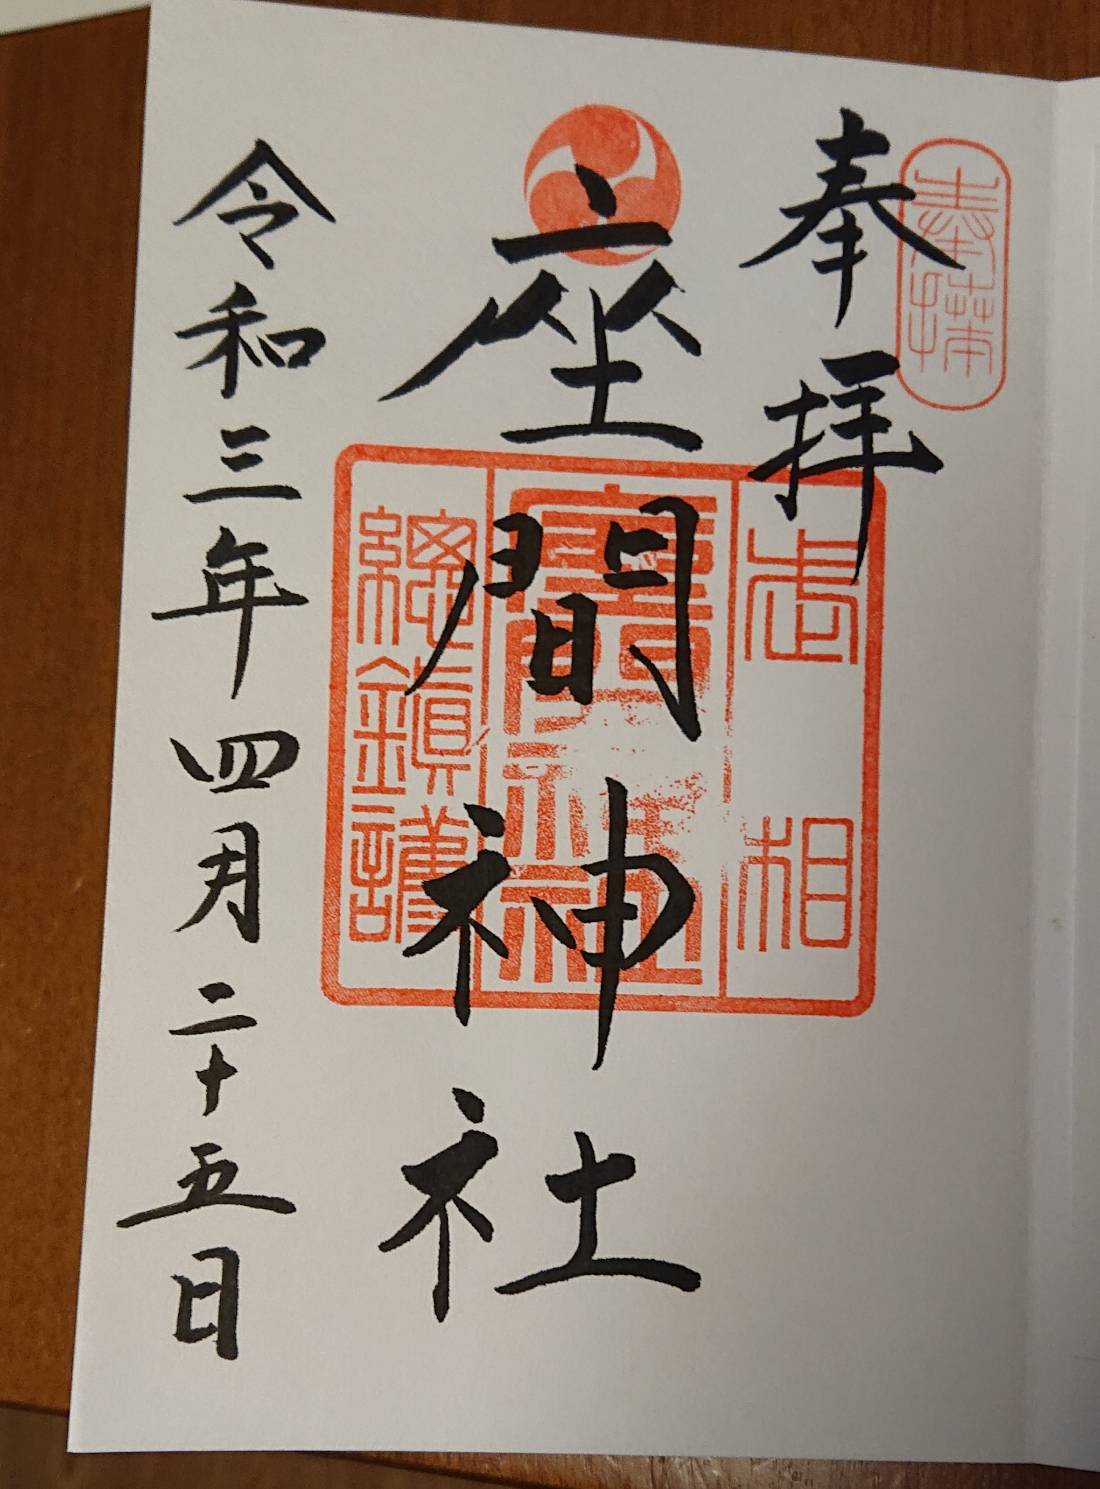 奉拝
奉拝
武相
座間神社
座間神社
總鎮護
令和三年四月二十五日